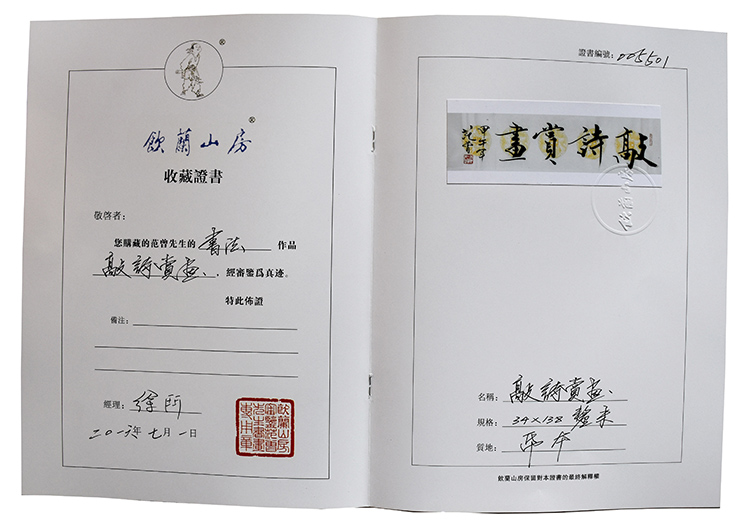 飲蘭山房
收藏證書
敬啓者：
您購藏的范曾先生的 書法 作品
敲詩賞畫 ，經審鑒爲真迹。
特此佈證
備注：
經理：徐昕
二〇一六年七月一日
飲蘭山房
審鑒范曾
先生書畫
專用章
證書編號：005501
敲詩賞畫
甲午年
范曾
飲蘭山房
名稱：敲詩賞畫
規格：34×138 釐米
質地：紙本
飲蘭山房保留對本證書的最終解釋權